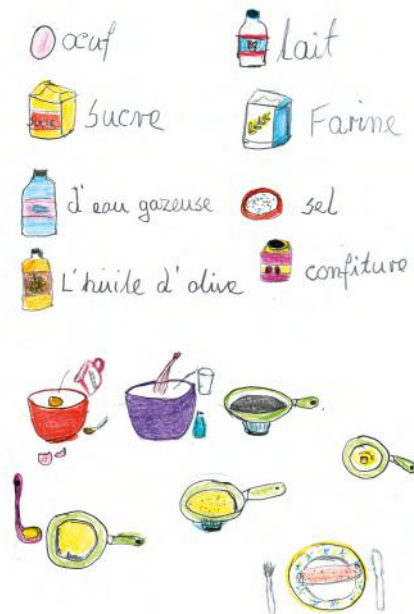 œuf
lait
sucre
Farine
d'eau gazeuse
sel
L'huile d'olive
confiture